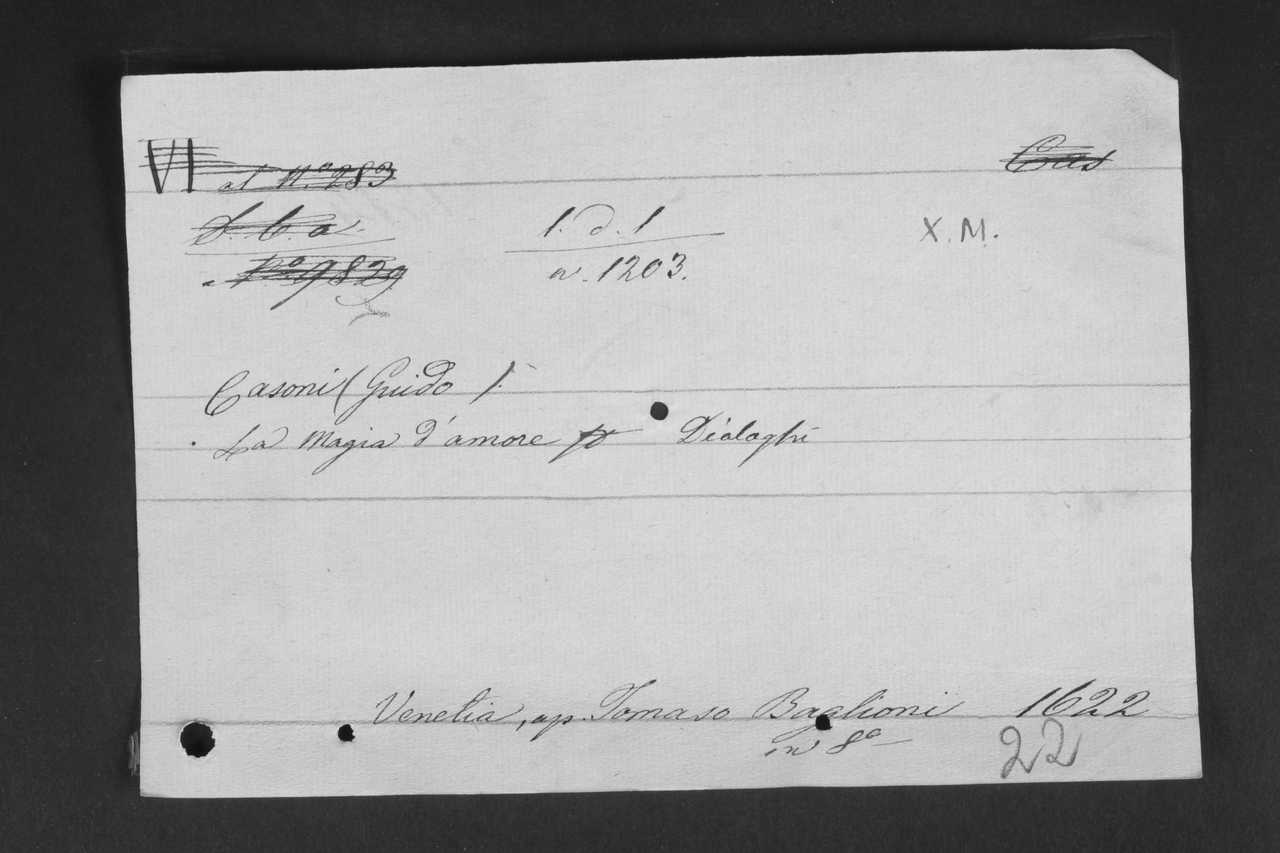 VI al N.º 283
Cas
S. C. a.
1. d. 1
X. M.
Nº 9829
n. 1203.
Casoni (Guido).
La Magia d'amore Dialoghi
Venetia, ap. Tomaso Baglioni 1622
in 8º
22